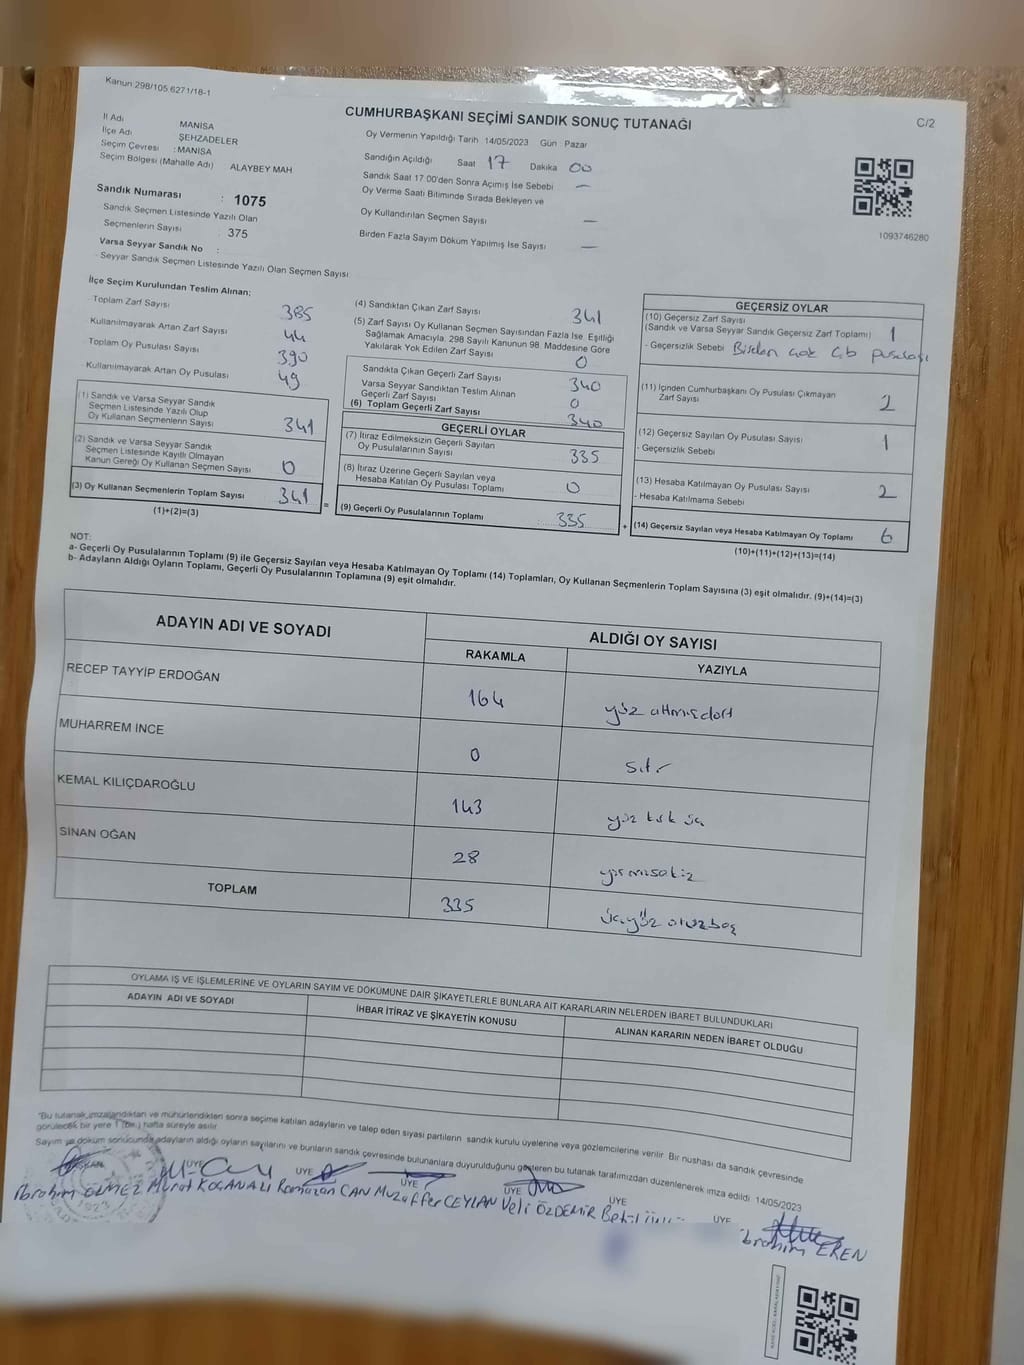 Kanun:298/105.6271/18-1
CUMHURBAŞKANI SEÇİMİ SANDIK SONUÇ TUTANAĞI
C/2
İl Adı MANİSA
İlçe Adı ŞEHZADELER
Seçim Çevresi : MANİSA
Seçim Bölgesi (Mahalle Adı) ALAYBEY MAH
Sandık Numarası : 1075
Sandık Seçmen Listesinde Yazılı Olan
Seçmenlerin Sayısı : 375
Varsa Seyyar Sandık No :
- Seyyar Sandık Seçmen Listesinde Yazılı Olan Seçmen Sayısı
Oy Vermenin Yapıldığı Tarih 14/05/2023 Gün Pazar
Sandığın Açıldığı Saat 17 Dakika 00
Sandık Saat 17.00'den Sonra Açımış İse Sebebi —
Oy Verme Saati Bitiminde Sırada Bekleyen ve
Oy Kullandırılan Seçmen Sayısı —
Birden Fazla Sayım Döküm Yapılmış İse Sayısı —
1093746280
İlçe Seçim Kurulundan Teslim Alınan;
- Toplam Zarf Sayısı 385
Kullanılmayarak Artan Zarf Sayısı 44
Toplam Oy Pusulası Sayısı 390
Kullanılmayarak Artan Oy Pusulası 49
(1) Sandık ve Varsa Seyyar Sandık
Seçmen Listesinde Yazılı Olup
Oy Kullanan Seçmenlerin Sayısı 341
(2) Sandık ve Varsa Seyyar Sandık
Seçmen Listesinde Kayıtlı Olmayan
Kanun Gereği Oy Kullanan Seçmen Sayısı 0
(3) Oy Kullanan Seçmenlerin Toplam Sayısı 341
(1)+(2)=(3)
=
(4) Sandıktan Çıkan Zarf Sayısı 341
(5) Zarf Sayısı Oy Kullanan Seçmen Sayısından Fazla İse, Eşitliği
Sağlamak Amacıyla, 298 Sayılı Kanunun 98. Maddesine Göre
Yakılarak Yok Edilen Zarf Sayısı 0
Sandıkta Çıkan Geçerli Zarf Sayısı 340
Varsa Seyyar Sandıktan Teslim Alınan
Geçerli Zarf Sayısı 0
(6) Toplam Geçerli Zarf Sayısı 340
GEÇERLİ OYLAR
(7) İtiraz Edilmeksizin Geçerli Sayılan
Oy Pusulalarının Sayısı 335
(8) İtiraz Üzerine Geçerli Sayılan veya
Hesaba Katılan Oy Pusulası Toplamı 0
(9) Geçerli Oy Pusulalarının Toplamı 335
+
GEÇERSİZ OYLAR
(10) Geçersiz Zarf Sayısı
(Sandık ve Varsa Seyyar Sandık Geçersiz Zarf Toplamı) 1
- Geçersizlik Sebebi Birden çok oy pusulası
(11) İçinden Cumhurbaşkanı Oy Pusulası Çıkmayan
Zarf Sayısı 2
(12) Geçersiz Sayılan Oy Pusulası Sayısı 1
- Geçersizlik Sebebi
(13) Hesaba Katılmayan Oy Pusulası Sayısı 2
- Hesaba Katılmama Sebebi
(14) Geçersiz Sayılan veya Hesaba Katılmayan Oy Toplamı 6
(10)+(11)+(12)+(13)=(14)
NOT:
a- Geçerli Oy Pusulalarının Toplamı (9) ile Geçersiz Sayılan veya Hesaba Katılmayan Oy Toplamı (14) Toplamları, Oy Kullanan Seçmenlerin Toplam Sayısına (3) eşit olmalıdır. (9)+(14)=(3)
b- Adayların Aldığı Oyların Toplamı, Geçerli Oy Pusulalarının Toplamına (9) eşit olmalıdır.
ADAYIN ADI VE SOYADI
ALDIĞI OY SAYISI
RAKAMLA YAZIYLA
RECEP TAYYİP ERDOĞAN 164 yüz altmışdört
MUHARREM İNCE 0 sıfır
KEMAL KILIÇDAROĞLU 143 yüz kırk üç
SİNAN OĞAN 28 yirmisekiz
TOPLAM 335 üçyüz otuzbeş
OYLAMA İŞ VE İŞLEMLERİNE VE OYLARIN SAYIM VE DÖKÜMÜNE DAİR ŞİKAYETLERLE BUNLARA AİT KARARLARIN NELERDEN İBARET BULUNDUKLARI
ADAYIN ADI VE SOYADI İHBAR İTİRAZ VE ŞİKAYETİN KONUSU ALINAN KARARIN NEDEN İBARET OLDUĞU
"Bu tutanak imzalandıktan ve mühürlendikten sonra seçime katılan adayların ve talep eden siyasi partilerin sandık kurulu üyelerine veya gözlemcilerine verilir. Bir nüshası da sandık çevresinde
görülecek bir yere 1 (bir) hafta süreyle asılır.
Sayım ve döküm sonucunda adayların aldığı oyların sayılarını ve bunların sandık çevresinde bulunanlara duyurulduğunu gösteren bu tutanak tarafımızdan düzenlenerek imza edildi. 14/05/2023
BAŞKAN ÜYE ÜYE ÜYE ÜYE ÜYE ÜYE
İbrahim ÖLMEZ Murat KOÇANALI Ramazan CAN Muzaffer CEYLAN Veli ÖZDEMİR İbrahim EREN